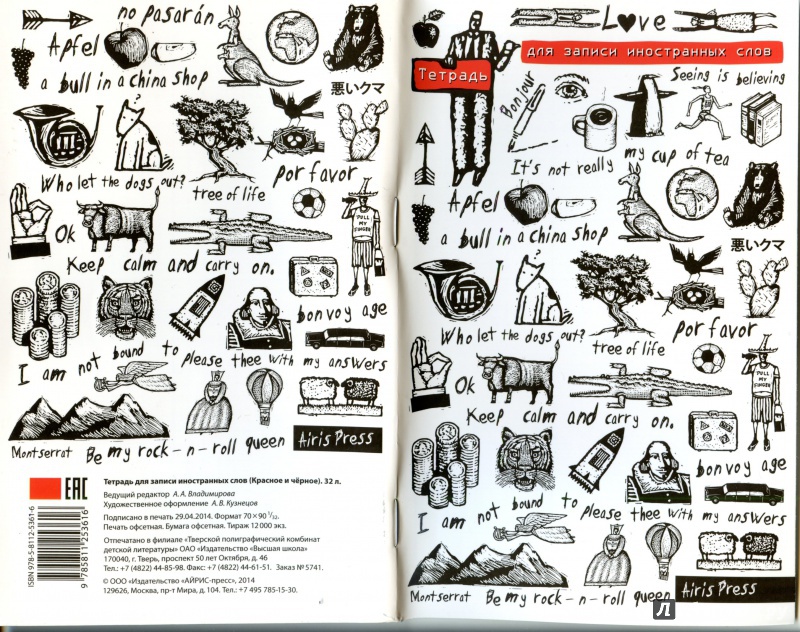 no pasarán
Apfel
a bull in a china shop
悪いクマ
Who let the dogs out?
tree of life
por favor
Ok
PULL MY FINGER
Keep calm and carry on.
bon voy age
I am not bound to please thee with my answers
Montserrat
Be my rock-n-roll queen
Airis Press
ISBN 978-5-8112-5361-6
9 785811 253616
EAC
Тетрадь для записи иностранных слов (Красное и чёрное). 32 л.
Ведущий редактор А. А. Владимирова
Художественное оформление А. В. Кузнецов
Подписано в печать 29.04.2014. Формат 70×90 1/32.
Печать офсетная. Бумага офсетная. Тираж 12 000 экз.
Отпечатано в филиале «Тверской полиграфический комбинат
детской литературы» ОАО «Издательство «Высшая школа»
170040, г. Тверь, проспект 50 лет Октября, д. 46
Тел.: +7 (4822) 44-85-98. Факс: +7 (4822) 44-61-51. Заказ № 5741.
© ООО «Издательство «АЙРИС-пресс», 2014
129626, Москва, пр-т Мира, д. 104. Тел.: +7 495 785-15-30.
L♥ve
для записи иностранных слов
Тетрадь
Seeing is believing
Bonjour
It's not really my cup of tea
Apfel
a bull in a china shop
悪いクマ
Who let the dogs out?
tree of life
por favor
Ok
PULL MY FINGER
Keep calm and carry on.
bon voy age
I am not bound to please thee with my answers
Montserrat
Be my rock-n-roll queen
Airis Press
Л